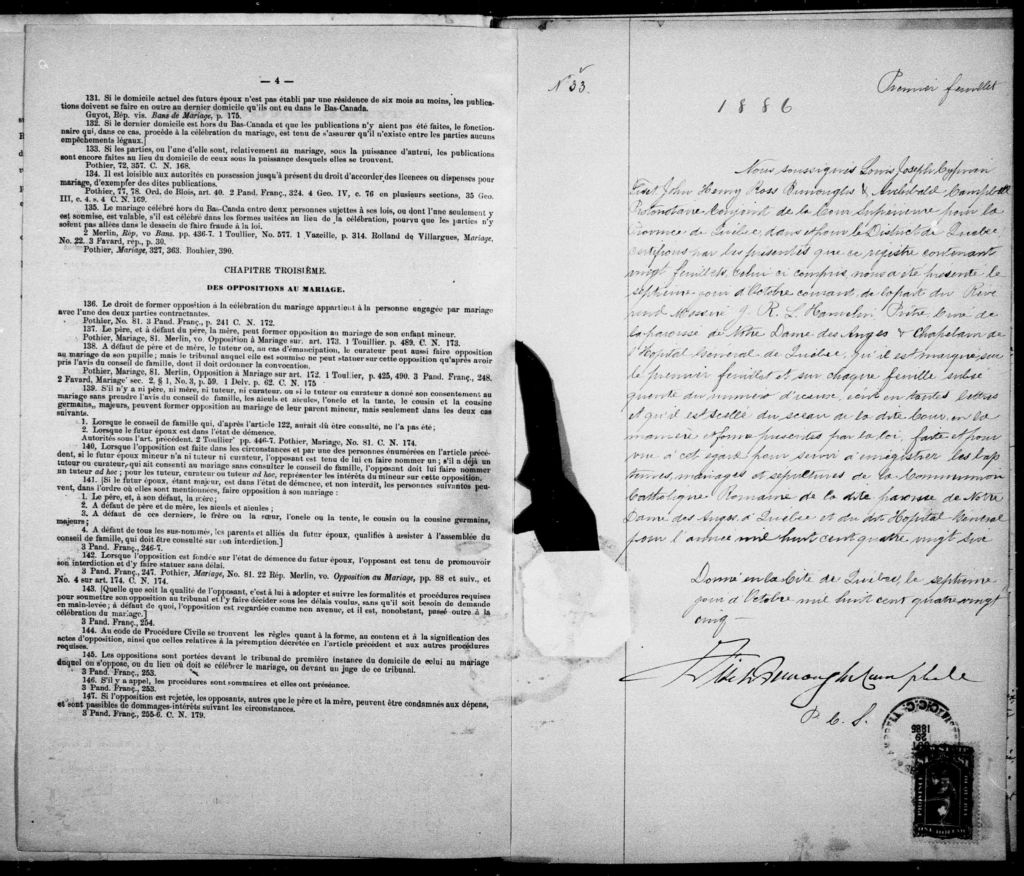 — 4 —
131. Si le domicile actuel des futurs époux n'est pas établi par une résidence de six mois au moins, les publica-
tions doivent se faire en outre au dernier domicile qu'ils ont eu dans le Bas-Canada.
Guyot, Rép. vis. Bans de Mariage, p. 175.
132. Si le dernier domicile est hors du Bas-Canada et que les publications n'y aient pas été faites, le fonction-
naire qui, dans ce cas, procède à la célébration du mariage, est tenu de s'assurer qu'il n'existe entre les parties aucuns
empêchements légaux.]
133. Si les parties, ou l'une d'elle sont, relativement au mariage, sous la puissance d'autrui, les publications
sont encore faites au lieu du domicile de ceux sous la puissance desquels elles se trouvent.
Pothier, 72, 357. C. N. 168.
134. Il est loisible aux autorités en possession jusqu'à présent du droit d'accorder des licences ou dispenses pour
mariage, d'exempter des dites publications.
Pothier, 77, 78. Ord. de Blois, art. 40. 2 Pand. Franç., 324. 4 Geo. IV, c. 76 en plusieurs sections, 35 Geo.
III, c. 4. s. 4 C. N. 169.
135. Le mariage célébré hors du Bas-Canda entre deux personnes sujettes à ses lois, ou dont l'une seulement y
est soumise, est valable, s'il est célébré dans les formes usitées au lieu de la célébration, pourvu que les parties n'y
soient pas allées dans le dessein de faire fraude à la loi.
2 Merlin, Rép, vo Bans. pp. 436-7. 1 Toullier, No. 577. 1 Vazeille, p. 314. Rolland de Villargues, Mariage,
No. 22. 3 Favard, rép., p. 30.
Pothier, Mariage, 327, 363. Bouhier, 390.
CHAPITRE TROISIÈME.
DES OPPOSITIONS AU MARIAGE.
136. Le droit de former opposition à la célébration du mariage appartient à la personne engagée par mariage
avec l'une des deux parties contractantes.
Pothier, No. 81. 3 Pand. Franç., p. 241 C. N. 172.
137. Le père, et à défaut du père, la mère, peut former opposition au mariage de son enfant mineur.
Pothier, Mariage, 81. Merlin, vo. Opposition à Mariage sur. art. 173. 1 Touillier. p. 489. C. N. 173.
138. A défaut de père et de mère, le tuteur ou, au cas d'émancipation, le curateur peut aussi faire opposition
au mariage de son pupille; mais le tribunal auquel elle est soumise ne peut statuer sur cette opposition qu'après avoir
pris l'avis du conseil de famille, dont il doit ordonner la convocation.
Pothier, Mariage, 81. Merlin, Opposition à Mariage sur art. 172. 1 Toullier, p. 425, 490. 3 Pand. Franç., 248.
2 Favard, Mariage sec. 2, § 1, No. 3, p. 59. 1 Delv. p. 62. C. N. 175
139. S'il n'y a ni père, ni mère, ni tuteur, ni curateur, ou si le tuteur ou curateur a donné son consentement au
mariage sans prendre l'avis du conseil de famille, les aïeuls et aïeules, l'oncle et la tante, le cousin et la cousine
germains, majeurs, peuvent former opposition au mariage de leur parent mineur, mais seulement dans les deux cas
suivants.
1. Lorsque le conseil de famille qui, d'après l'article 122, aurait dû être consulté, ne l'a pas été;
2. Lorsque le futur époux est dans l'état de démence.
Autorités sous l'art. précédent. 2 Toullier pp. 446-7. Pothier, Mariage, No. 81. C. N. 174.
140. Lorsque opposition est faite dans les circonstances et par une des personnes énumérées en l'article précé-
dent, si le futur époux mineur n'a ni tuteur ni curateur, l'opposant est tenu de lui en faire nommer un; s'il a déjà un
tuteur ou curateur, qui ait consenti au mariage sans consulter le conseil de famille, l'opposant doit lui faire nommer
un tuteur ad hoc; pour les tuteur, curateur ou tuteur ad hoc, représenter les intérêts du mineur sur cette opposition.
141. [Si le futur époux, étant majeur, est dans l'état de démence, et non interdit, les personnes suivantes peu-
vent, dans l'ordre où elles sont mentionnées, faire opposition à son mariage :
1. Le père, et, à son défaut, la mère;
2. A défaut de père et de mère, les aïeuls et aïeules;
3. A défaut de ces dernier, le frère ou la sœur, l'oncle ou la tente, le cousin ou la cousine germains,
majeurs;
4. A défaut de tous les sus-nommés, les parents et alliés du futur époux, qualifiés à assister à l'assemblée du
conseil de famille, qui doit être consulté sur son interdiction.]
3 Pand. Franç., 246-7.
142. Lorsque l'opposition est fondée sur l'état de démence du futur époux, l'opposant est tenu de promouvoir
son interdiction et d'y faire statuer sans délai.
3 Pand. Franç., 247. Pothier, Mariage, No. 81. 22 Rép. Merlin, vo. Opposition au Mariage, pp. 88 et suiv., et
No. 4 sur art. 174. C. N. 174.
143. [Quelle que soit la qualité de l'opposant, c'est à lui à adopter et suivre les formalités et procédures requises
pour soumettre son opposition au tribunal et l'y faire décider sous les délais voulus, sans qu'il soit besoin de demande
en main-levée; à défaut de quoi, l'opposition est regardée comme non avenue, et il est, nonobstant, passé outre à la
célébration du mariage.]
3 Pand. Franç., 254.
144. Au code de Procédure Civile se trouvent les règles quant à la forme, au contenu et à la signification des
actes d'opposition, ainsi que celles relatives à la péremption décretée en l'article précédent et aux autres procédures
requises.
145. Les oppositions sont portées devant le tribunal de première instance du domicile de celui au mariage
duquel on s'oppose, ou du lieu où doit se célébrer le mariage, ou devant un juge de ce tribunal.
3 Pand. Franç., 253.
146. S'il y a appel, les procédures sont sommaires et elles ont préséance.
3 Pand. Franç., 253.
147. Si l'opposition est rejetée, les opposants, autres que le père et la mère, peuvent être condamnés aux dépens,
et sont passibles de dommages-intérêts suivant les circonstances.
3 Pand. Franç., 255-6. C. N. 179.
No 33.
Premier feuillet
1886
Nous soussignés Louis Joseph Cyprien
Fiset John Henry Ross Burroughs & Archibald Campbell
Protonotaire Conjoint de la Cour Supérieure pour la
Province de Québec, dans et pour le District de Québec
certifions par les présentes que ce registre contenant
vingt feuillets, celui ci compris, nous a été présenté le
septième jour d'Octobre courant, de la part du Révé
rend Messire J. R. L. Hamelin Prêtre Curé de
la paroisse de Notre Dame des Anges & Chapelain de
l'Hôpital Général de Québec, qu'il est marqué sur
le premier feuillet et sur chaque feuille subsé
quente du numéro d'icelui, écrit en toutes lettres
et qu'il est scellé du sceau de la dite Cour, en la
manière et forme prescrites par la loi, faite et pour
vue à cet égard pour servir à enregistrer les bap
têmes, mariages et sépultures de la Communion
Catholique Romaine de la dite paroisse de Notre
Dame des Anges d Québec et du dit Hôpital Général
pour l'année mil huit cent quatre vingt six
Donné en la Cité de Québec, le septième
jour d'Octobre mil huit cent quatre vingt
cinq —
Fiset Burroughs Campbell
P. C. S.
1886
ONE DOLLAR